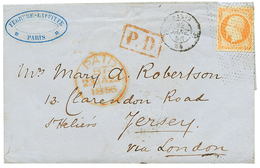 PARIS
P.D.
PAID
1856
Mrs Mary A. Robertson
13. Clarendon Road
St Heliers Jersey
via London